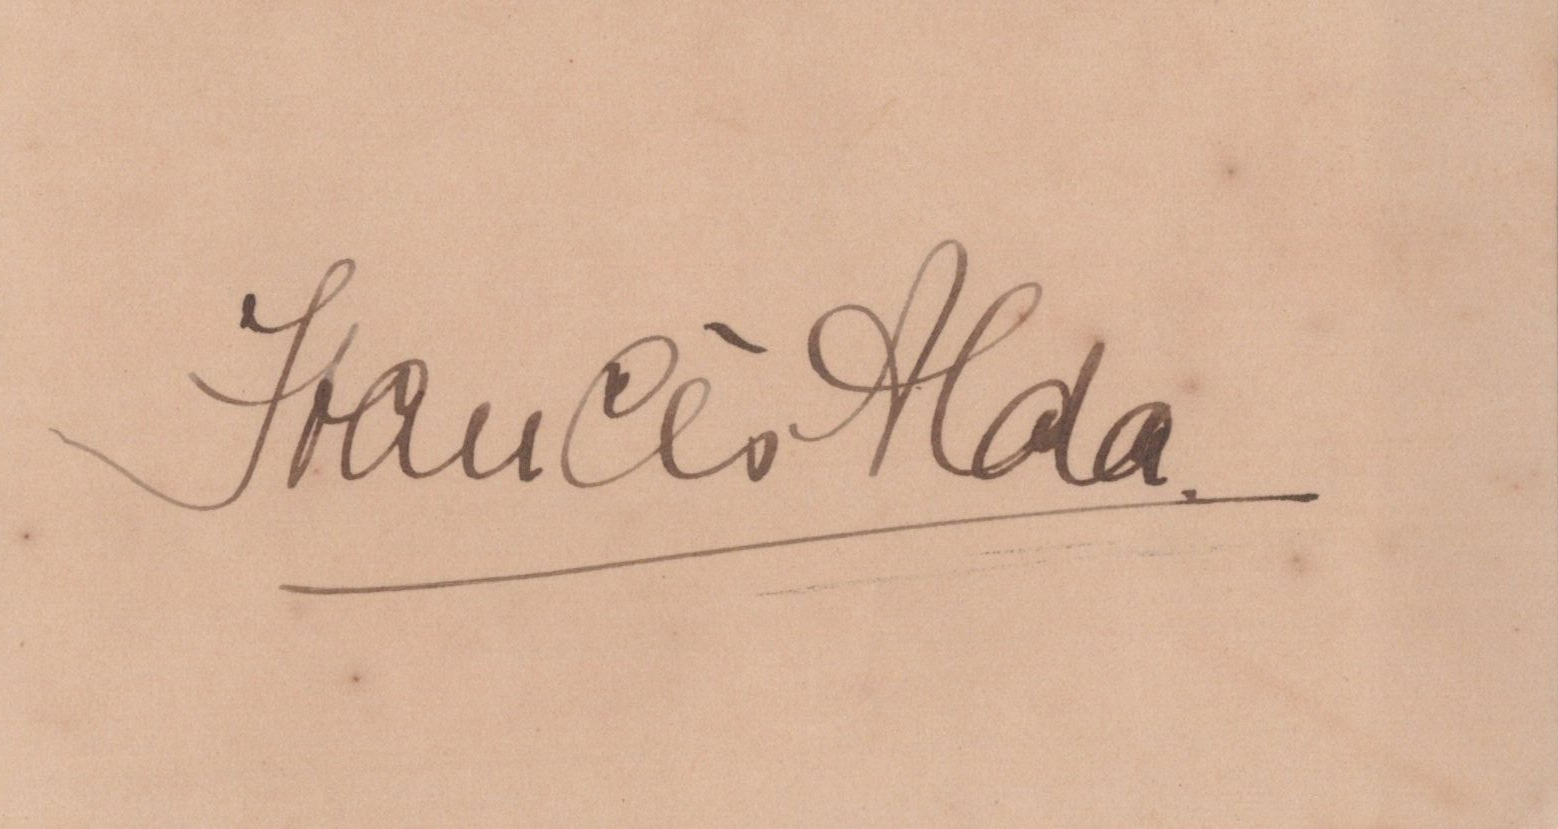 Francès Alda.